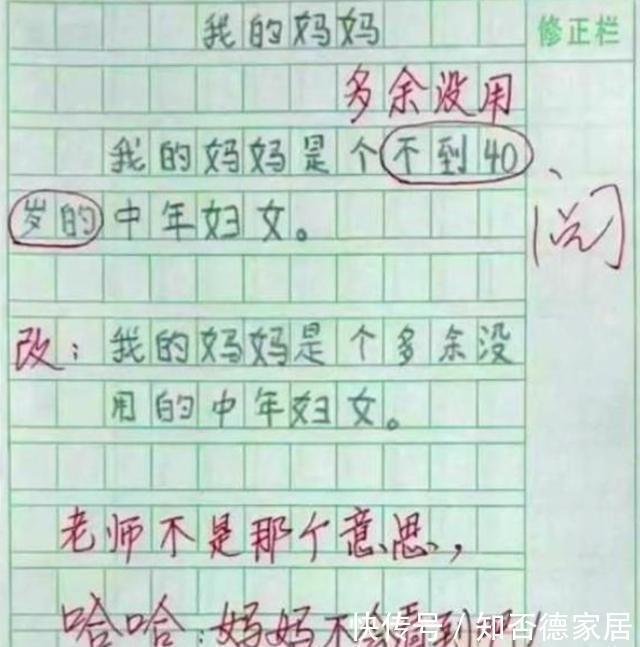 我的妈妈
修正栏
多余没用
我的妈妈是个不到40
岁的中年妇女。
阅
改：我的妈妈是个多余没
用的中年妇女。
老师不是那个意思，
哈哈，妈妈不会看到
快传号/知否德家居